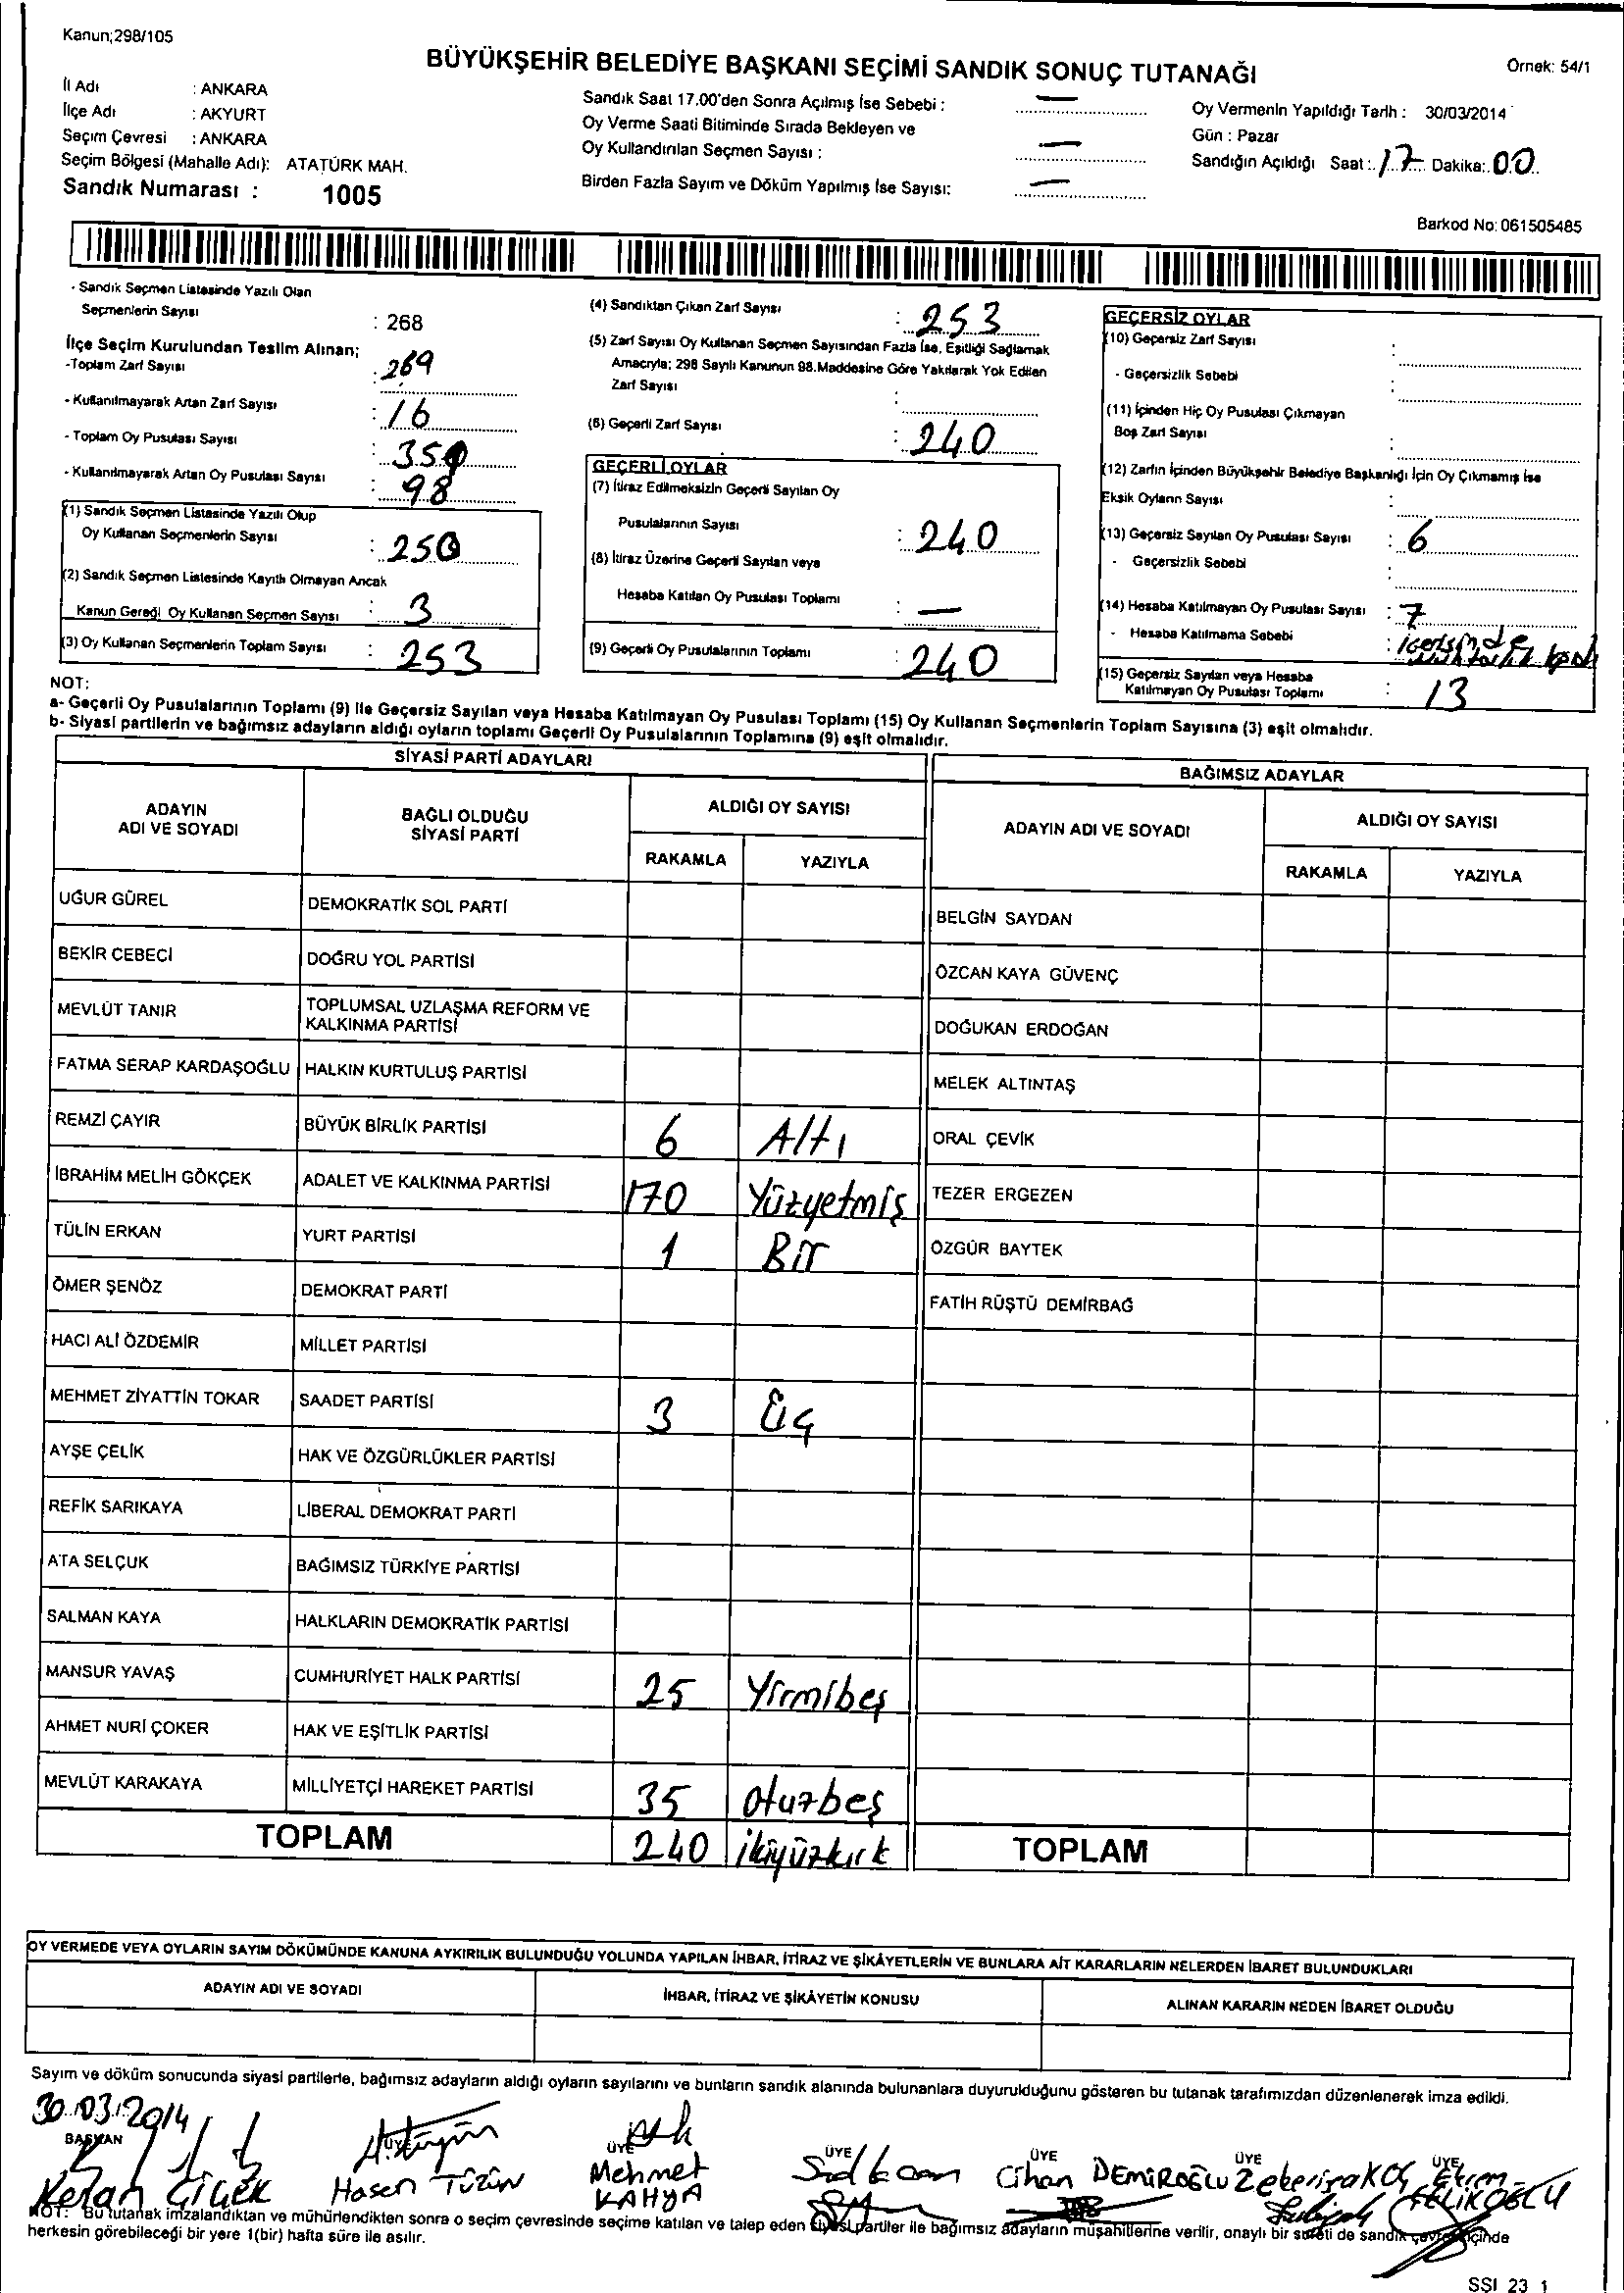 Kanun;298/105
BÜYÜKŞEHİR BELEDİYE BAŞKANI SEÇİMİ SANDIK SONUÇ TUTANAĞI
Örnek: 54/1
İl Adı : ANKARA
İlçe Adı : AKYURT
Seçim Çevresi : ANKARA
Seçim Bölgesi (Mahalle Adı): ATATÜRK MAH.
Sandık Numarası : 1005
Sandık Saat 17.00'den Sonra Açılmış İse Sebebi : —
Oy Verme Saati Bitiminde Sırada Bekleyen ve
Oy Kullandırılan Seçmen Sayısı : —
Birden Fazla Sayım ve Döküm Yapılmış İse Sayısı: —
Oy Vermenin Yapıldığı Tarih : 30/03/2014
Gün : Pazar
Sandığın Açıldığı Saat : 17 Dakika: 00
Barkod No: 061505485
- Sandık Seçmen Listesinde Yazılı Olan
Seçmenlerin Sayısı : 268
İlçe Seçim Kurulundan Teslim Alınan;
-Toplam Zarf Sayısı : 269
- Kullanılmayarak Artan Zarf Sayısı : 16
- Toplam Oy Pusulası Sayısı :
- Kullanılmayarak Artan Oy Pusulası Sayısı : 98
(1) Sandık Seçmen Listesinde Yazılı Olup
Oy Kullanan Seçmenlerin Sayısı : 250
(2) Sandık Seçmen Listesinde Kayıtlı Olmayan Ancak
Kanun Gereği Oy Kullanan Seçmen Sayısı : 3
(3) Oy Kullanan Seçmenlerin Toplam Sayısı : 253
(4) Sandıktan Çıkan Zarf Sayısı : 253
(5) Zarf Sayısı Oy Kullanan Seçmen Sayısından Fazla İse, Eşitliği Sağlamak
Amacıyla; 298 Sayılı Kanunun 98.Maddesine Göre Yakılarak Yok Edilen
Zarf Sayısı :
(6) Geçerli Zarf Sayısı : 240
GEÇERLİ OYLAR
(7) İtiraz Edilmeksizin Geçerli Sayılan Oy
Pusulalarının Sayısı : 240
(8) İtiraz Üzerine Geçerli Sayılan veya
Hesaba Katılan Oy Pusulası Toplamı : —
(9) Geçerli Oy Pusulalarının Toplamı : 240
GEÇERSİZ OYLAR
(10) Geçersiz Zarf Sayısı :
- Geçersizlik Sebebi :
(11) İçinden Hiç Oy Pusulası Çıkmayan
Boş Zarf Sayısı :
(12) Zarfın İçinden Büyükşehir Belediye Başkanlığı İçin Oy Çıkmamış İse
Eksik Oyların Sayısı :
(13) Geçersiz Sayılan Oy Pusulası Sayısı : 6
- Geçersizlik Sebebi :
(14) Hesaba Katılmayan Oy Pusulası Sayısı : 7
- Hesaba Katılmama Sebebi : içerisinde
(15) Geçersiz Sayılan veya Hesaba
Katılmayan Oy Pusulası Toplamı : 13
NOT:
a- Geçerli Oy Pusulalarının Toplamı (9) ile Geçersiz Sayılan veya Hesaba Katılmayan Oy Pusulası Toplamı (15) Oy Kullanan Seçmenlerin Toplam Sayısına (3) eşit olmalıdır.
b- Siyasi partilerin ve bağımsız adayların aldığı oyların toplamı Geçerli Oy Pusulalarının Toplamına (9) eşit olmalıdır.
SİYASİ PARTİ ADAYLARI
ADAYIN ADI VE SOYADI BAĞLI OLDUĞU SİYASİ PARTİ ALDIĞI OY SAYISI
RAKAMLA YAZIYLA
UĞUR GÜREL DEMOKRATİK SOL PARTİ
BEKİR CEBECİ DOĞRU YOL PARTİSİ
MEVLÜT TANIR TOPLUMSAL UZLAŞMA REFORM VE KALKINMA PARTİSİ
FATMA SERAP KARDAŞOĞLU HALKIN KURTULUŞ PARTİSİ
REMZİ ÇAYIR BÜYÜK BİRLİK PARTİSİ 6 Altı
İBRAHİM MELİH GÖKÇEK ADALET VE KALKINMA PARTİSİ 170 Yüzyetmiş
TÜLİN ERKAN YURT PARTİSİ 1 Bir
ÖMER ŞENÖZ DEMOKRAT PARTİ
HACI ALİ ÖZDEMİR MİLLET PARTİSİ
MEHMET ZİYATTİN TOKAR SAADET PARTİSİ 3 Üç
AYŞE ÇELİK HAK VE ÖZGÜRLÜKLER PARTİSİ
REFİK SARIKAYA LİBERAL DEMOKRAT PARTİ
ATA SELÇUK BAĞIMSIZ TÜRKİYE PARTİSİ
SALMAN KAYA HALKLARIN DEMOKRATİK PARTİSİ
MANSUR YAVAŞ CUMHURİYET HALK PARTİSİ 25 Yirmibeş
AHMET NURİ ÇOKER HAK VE EŞİTLİK PARTİSİ
MEVLÜT KARAKAYA MİLLİYETÇİ HAREKET PARTİSİ 35 Otuzbeş
TOPLAM 240 ikiyüzkırk
BAĞIMSIZ ADAYLAR
ADAYIN ADI VE SOYADI ALDIĞI OY SAYISI
RAKAMLA YAZIYLA
BELGİN SAYDAN
ÖZCAN KAYA GÜVENÇ
DOĞUKAN ERDOĞAN
MELEK ALTINTAŞ
ORAL ÇEVİK
TEZER ERGEZEN
ÖZGÜR BAYTEK
FATİH RÜŞTÜ DEMİRBAĞ
TOPLAM
OY VERMEDE VEYA OYLARIN SAYIM DÖKÜMÜNDE KANUNA AYKIRILIK BULUNDUĞU YOLUNDA YAPILAN İHBAR, İTİRAZ VE ŞİKÂYETLERİN VE BUNLARA AİT KARARLARIN NELERDEN İBARET BULUNDUKLARI
ADAYIN ADI VE SOYADI İHBAR, İTİRAZ VE ŞİKÂYETİN KONUSU ALINAN KARARIN NEDEN İBARET OLDUĞU
Sayım ve döküm sonucunda siyasi partilerle, bağımsız adayların aldığı oyların sayılarını ve bunların sandık alanında bulunanlara duyurulduğunu gösteren bu tutanak tarafımızdan düzenlenerek imza edildi.
30.03.2014
BAŞKAN ÜYE ÜYE ÜYE ÜYE ÜYE ÜYE
Kenan ÇİÇEK Hasan TÜZÜN Mehmet KAHYA Cihan DEMİROĞLU Zekeriya KOÇ Ekrem ÇELİKOĞLU
NOT: Bu tutanak imzalandıktan ve mühürlendikten sonra o seçim çevresinde seçime katılan ve talep eden siyasi partiler ile bağımsız adayların müşahitlerine verilir, onaylı bir sureti de sandık çevresi içinde
herkesin görebileceği bir yere 1(bir) hafta süre ile asılır.
SSI 23 1